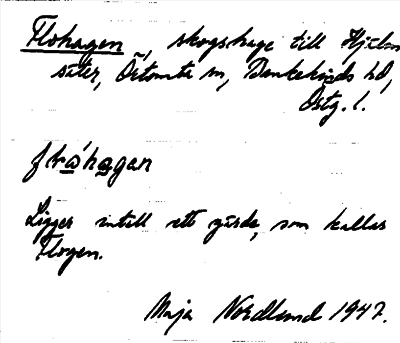 Flohagen, skogshage till Hjälm
säter, Ö. Tomta sn, Bankekinds hd,
Östg. l.
flὼhagan
Ligger intill ett gärde, som kallas
Flogen.
Maja Nordlund 1947.